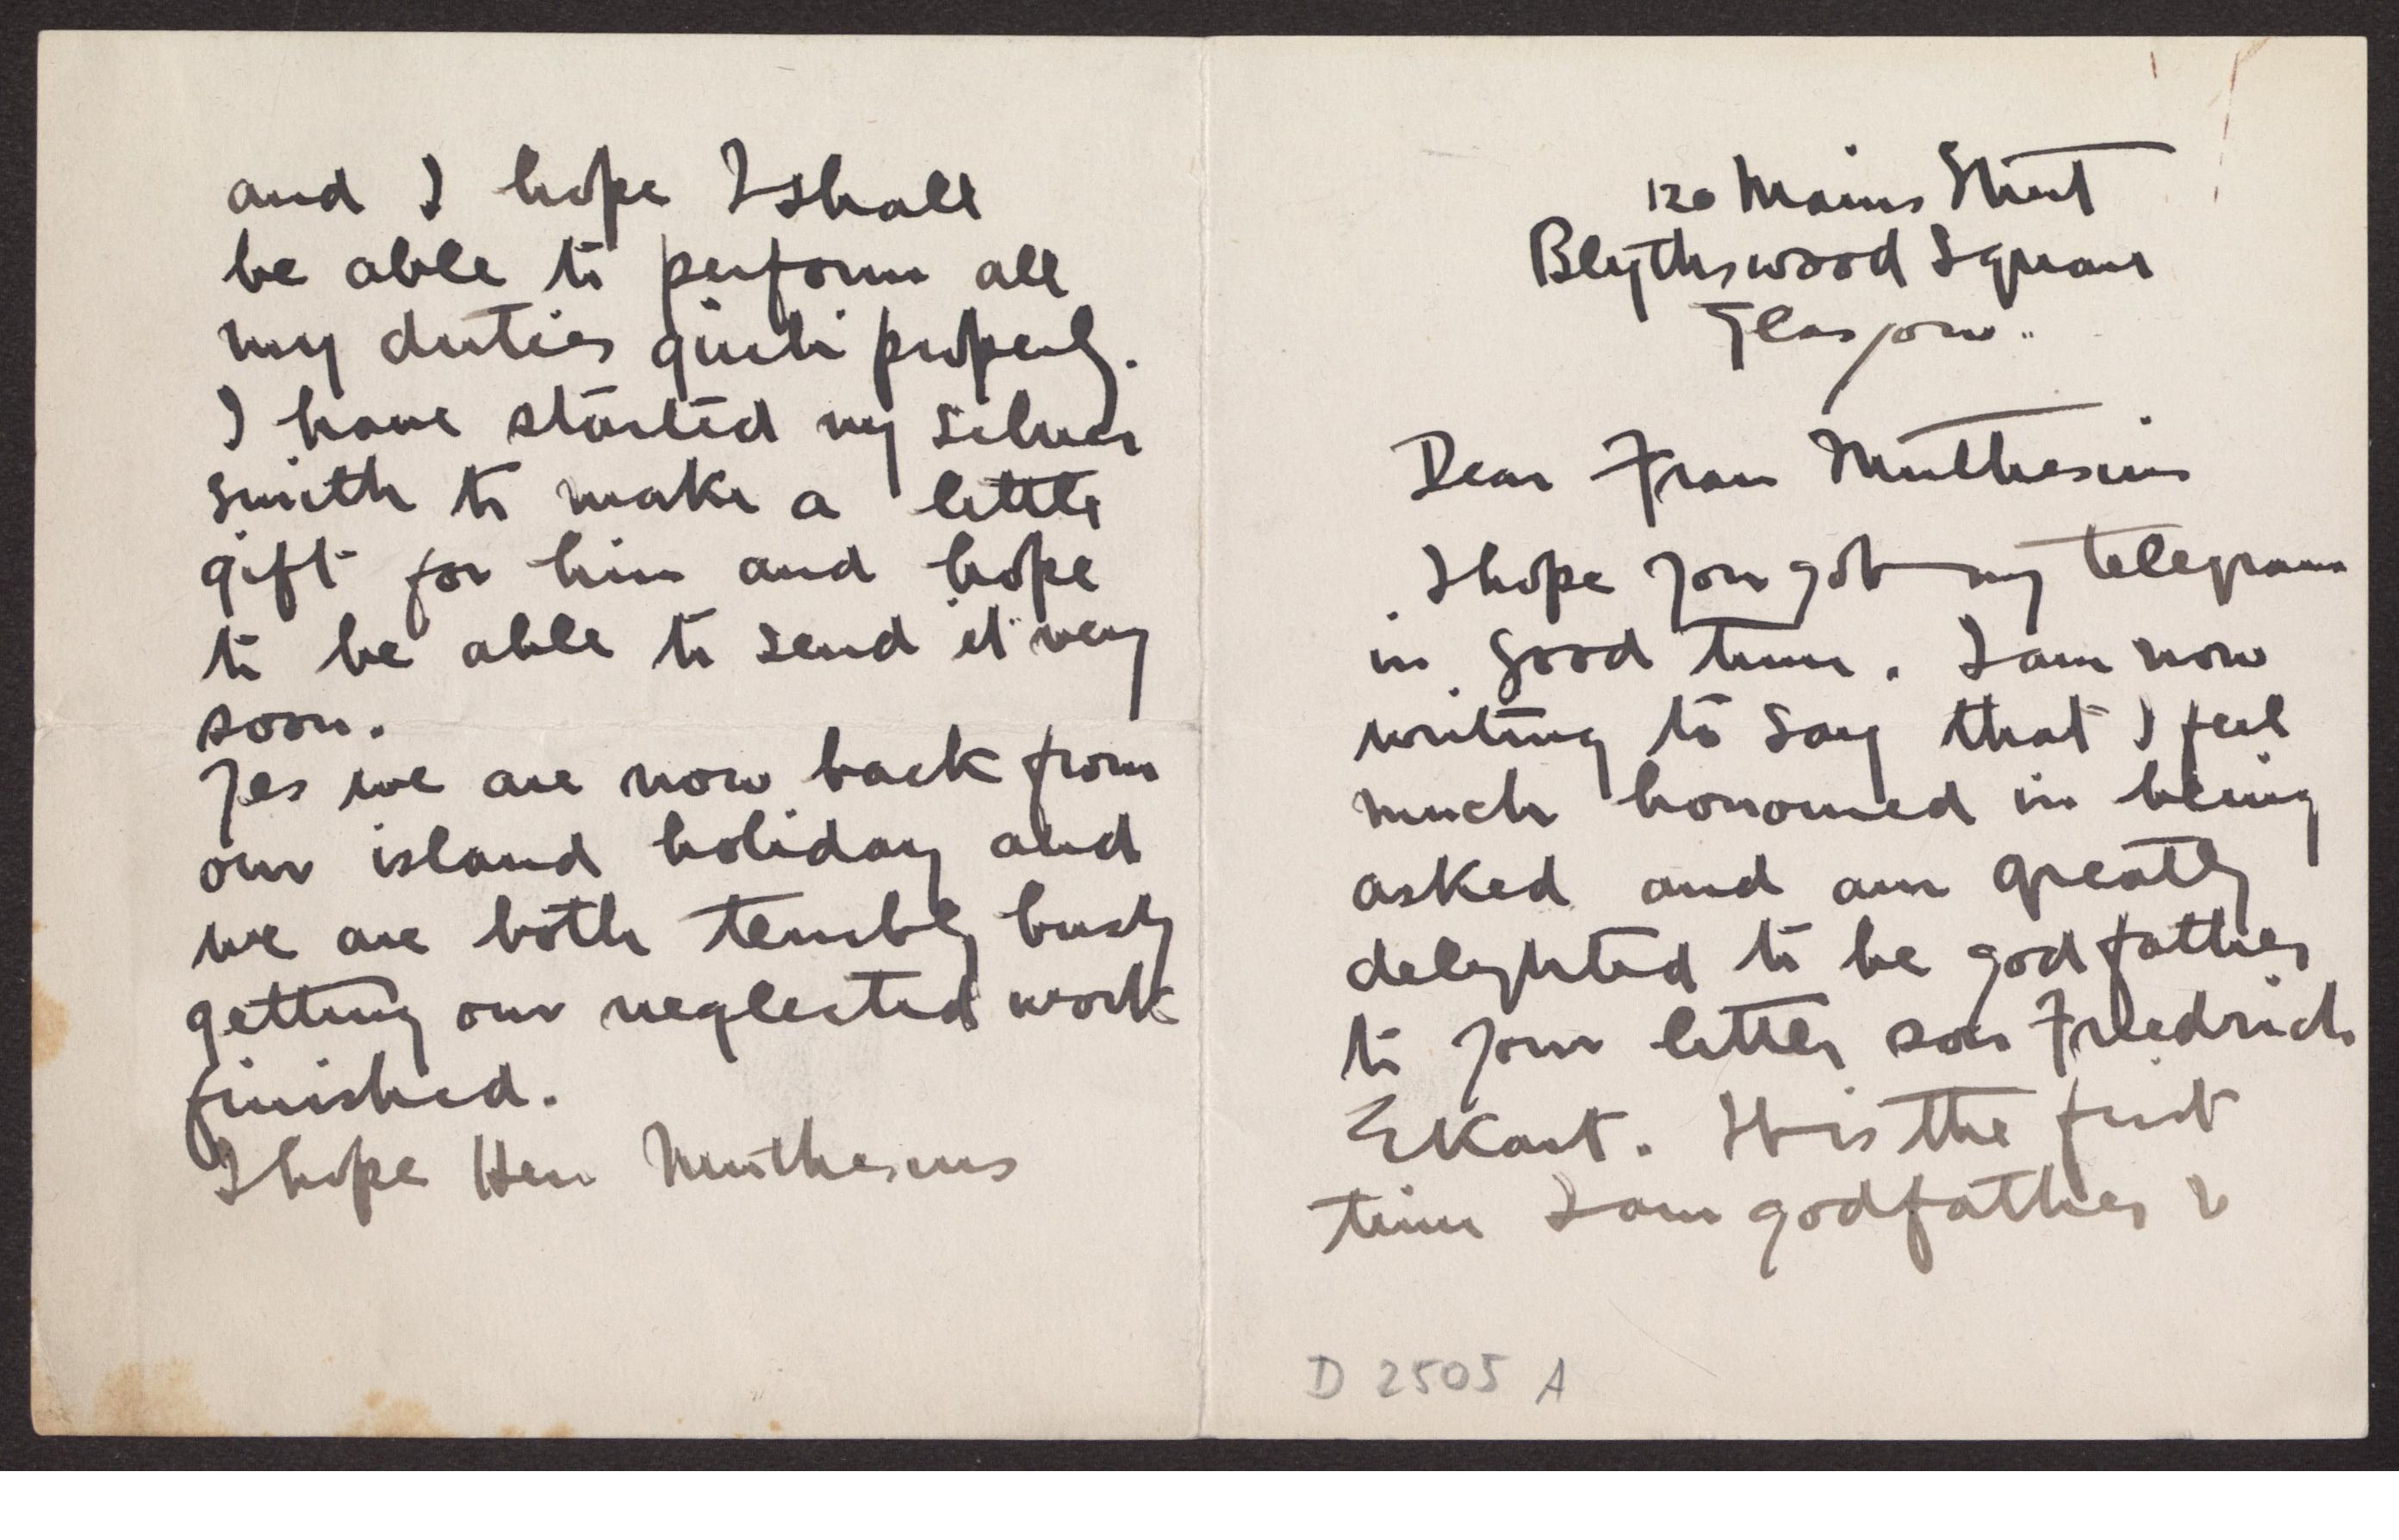 120 Mains Street
Blythswood Square
Glasgow.
Dear Frau Muthesius
I hope you got my telegram
in good time. I am now
writing to say that I feel
much honoured in being
asked and am greatly
delighted to be godfather
to your little son Friedrich
Ekart. It is the first
time I am godfather &
D 2505 A
and I hope I shall
be able to perform all
my duties quite properly.
I have started my silver
smith to make a little
gift for him and hope
to be able to send it very
soon.
Yes we are now back from
our island holiday and
we are both terribly busy
getting our neglected work
finished.
I hope Herr Muthesius